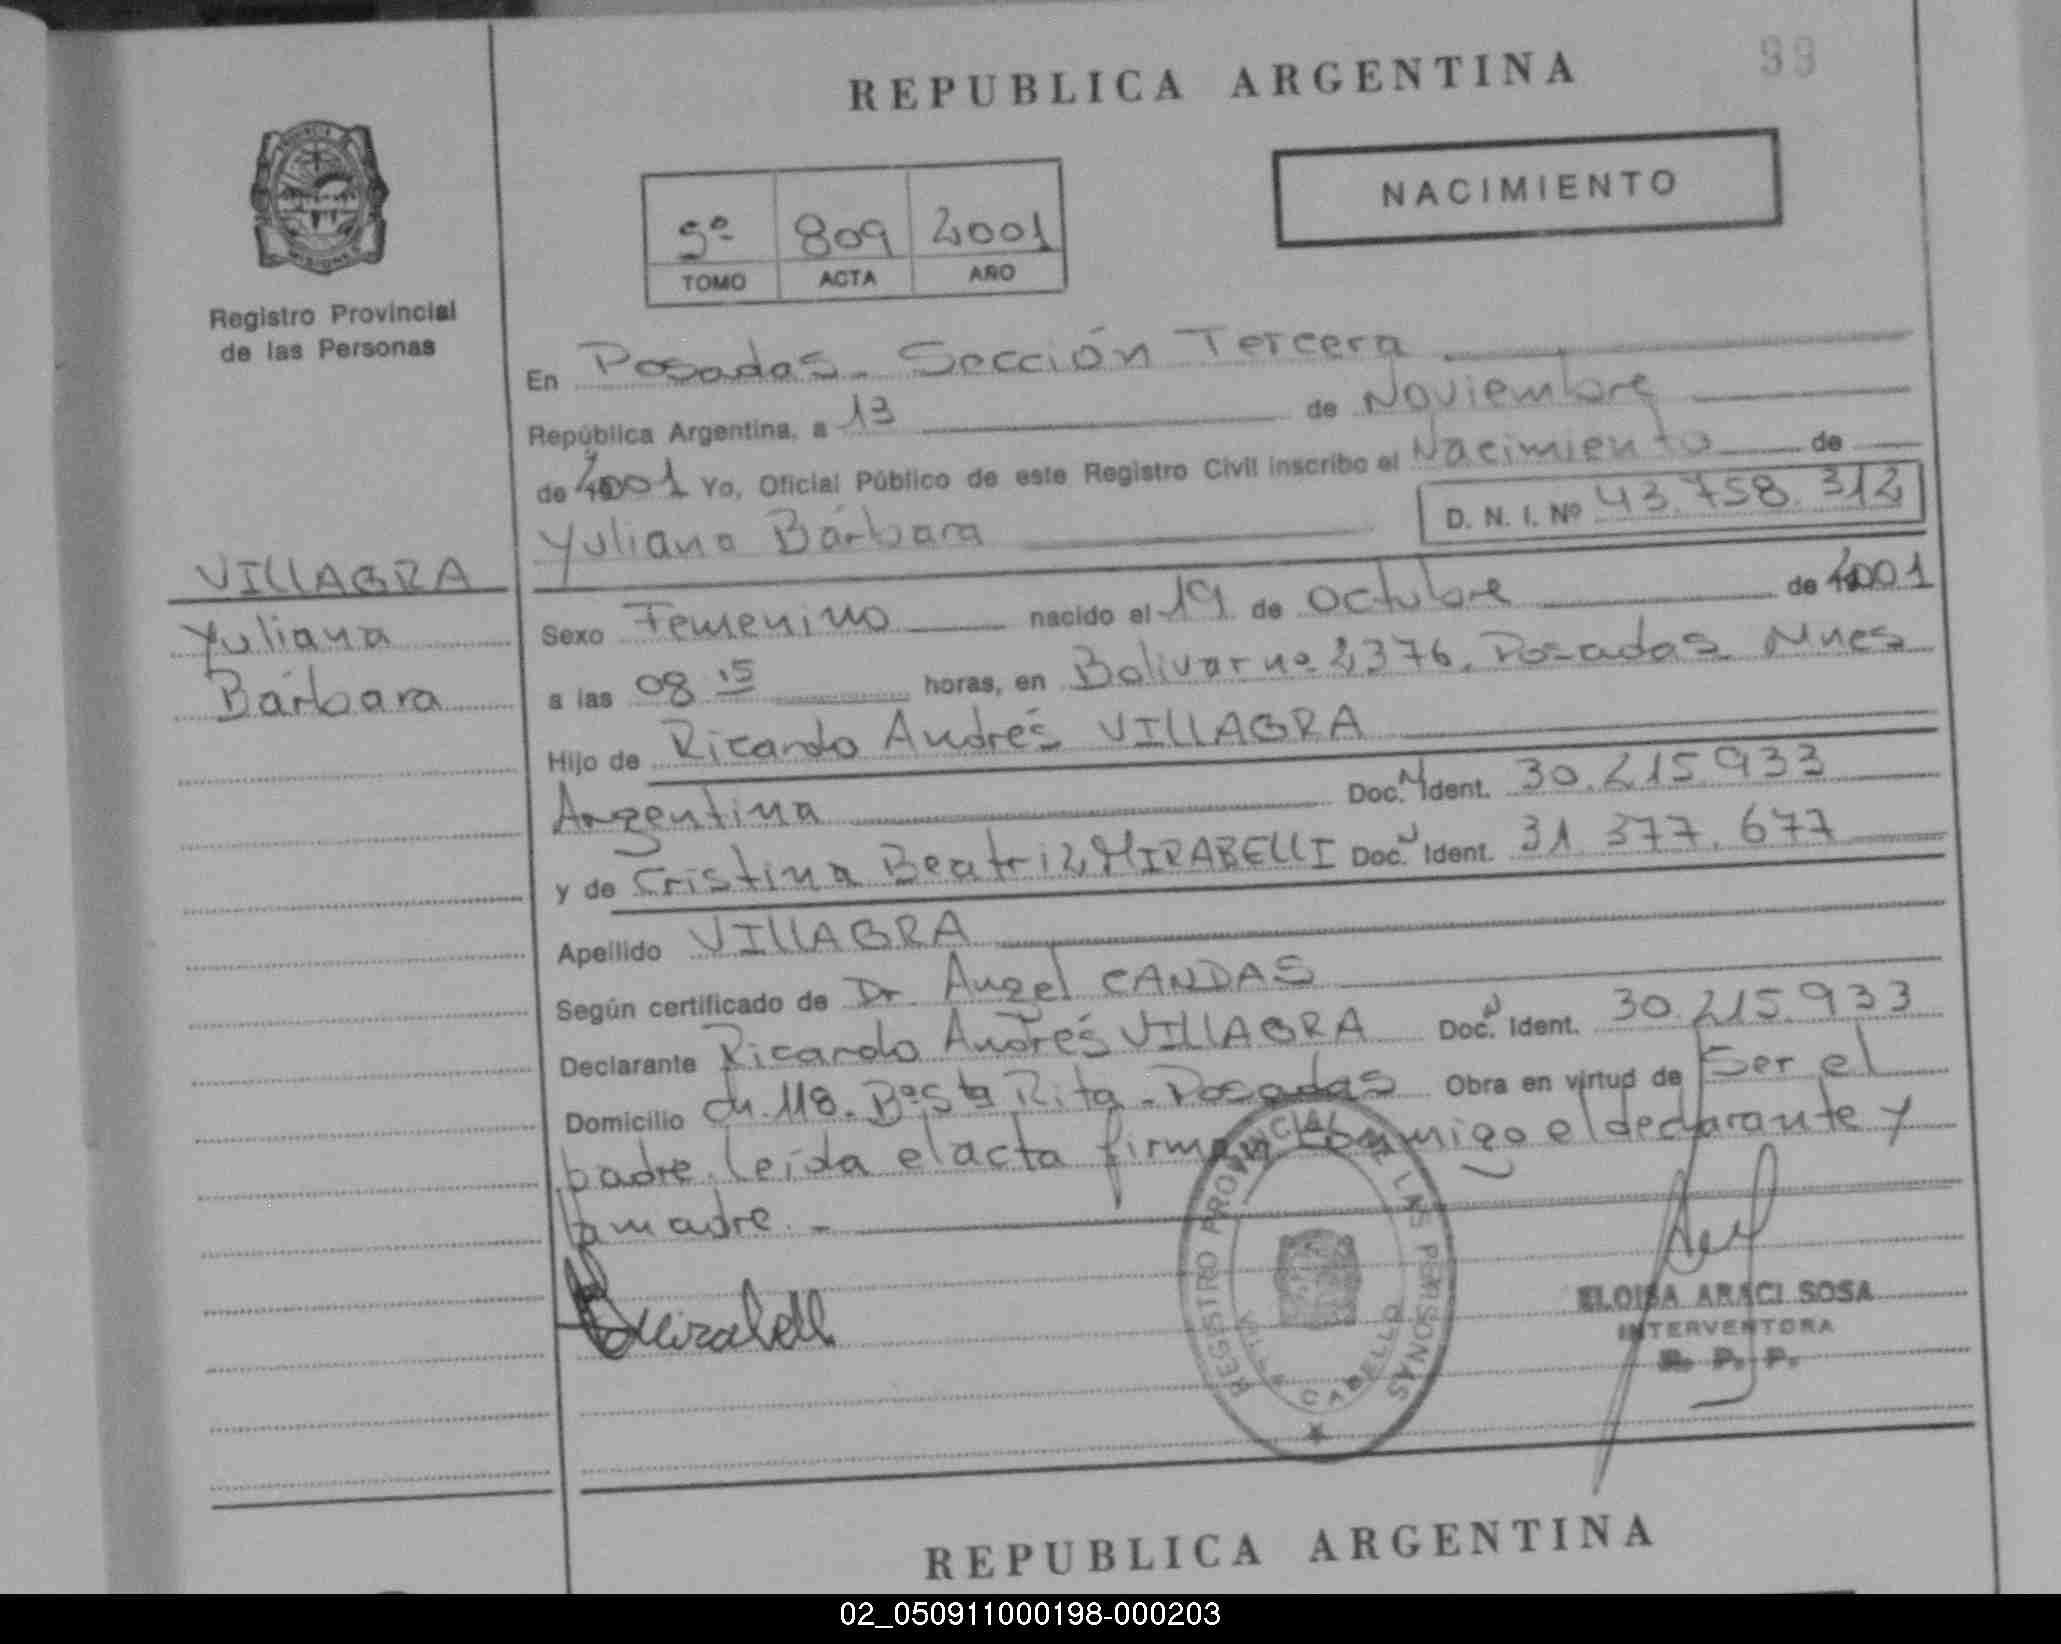 99
REPUBLICA ARGENTINA
NACIMIENTO
5º 809 2001
TOMO ACTA AÑO
PROVINCIA
MISIONES
Registro Provincial
de las Personas
En Posadas. Sección Tercera
República Argentina, a 13 de Noviembre
de 2001 Yo, Oficial Público de este Registro Civil inscribo el Nacimiento de
Yuliana Bárbara D. N. I. Nº 43.758.312
VILLAGRA
Yuliana
Bárbara
Sexo Femenino nacido el 19 de Octubre de 2001
a las 08 15 horas, en Bolivar nº 2376. Posadas Mnes
Hijo de Ricardo Andrés VILLAGRA
Argentina Doc. N Ident. 30.215.933
y de Cristina Beatriz MIRABELLI Doc. N Ident. 31.377.677
Apellido VILLAGRA
Según certificado de Dr. Angel CANDAS
Declarante Ricardo Andrés VILLAGRA Doc. N Ident. 30.215.933
Domicilio Ch. 118. Bº Sta Rita. Posadas Obra en virtud de Ser el
padre. Leída el acta firman conmigo el declarante y
la madre. -
Mirabelli
REGISTRO PROVINCIAL DE LAS PERSONAS
VILLA CABELLO
ELOISA ARACI SOSA
INTERVENTORA
R. P. P.
REPUBLICA ARGENTINA
02_050911000198-000203